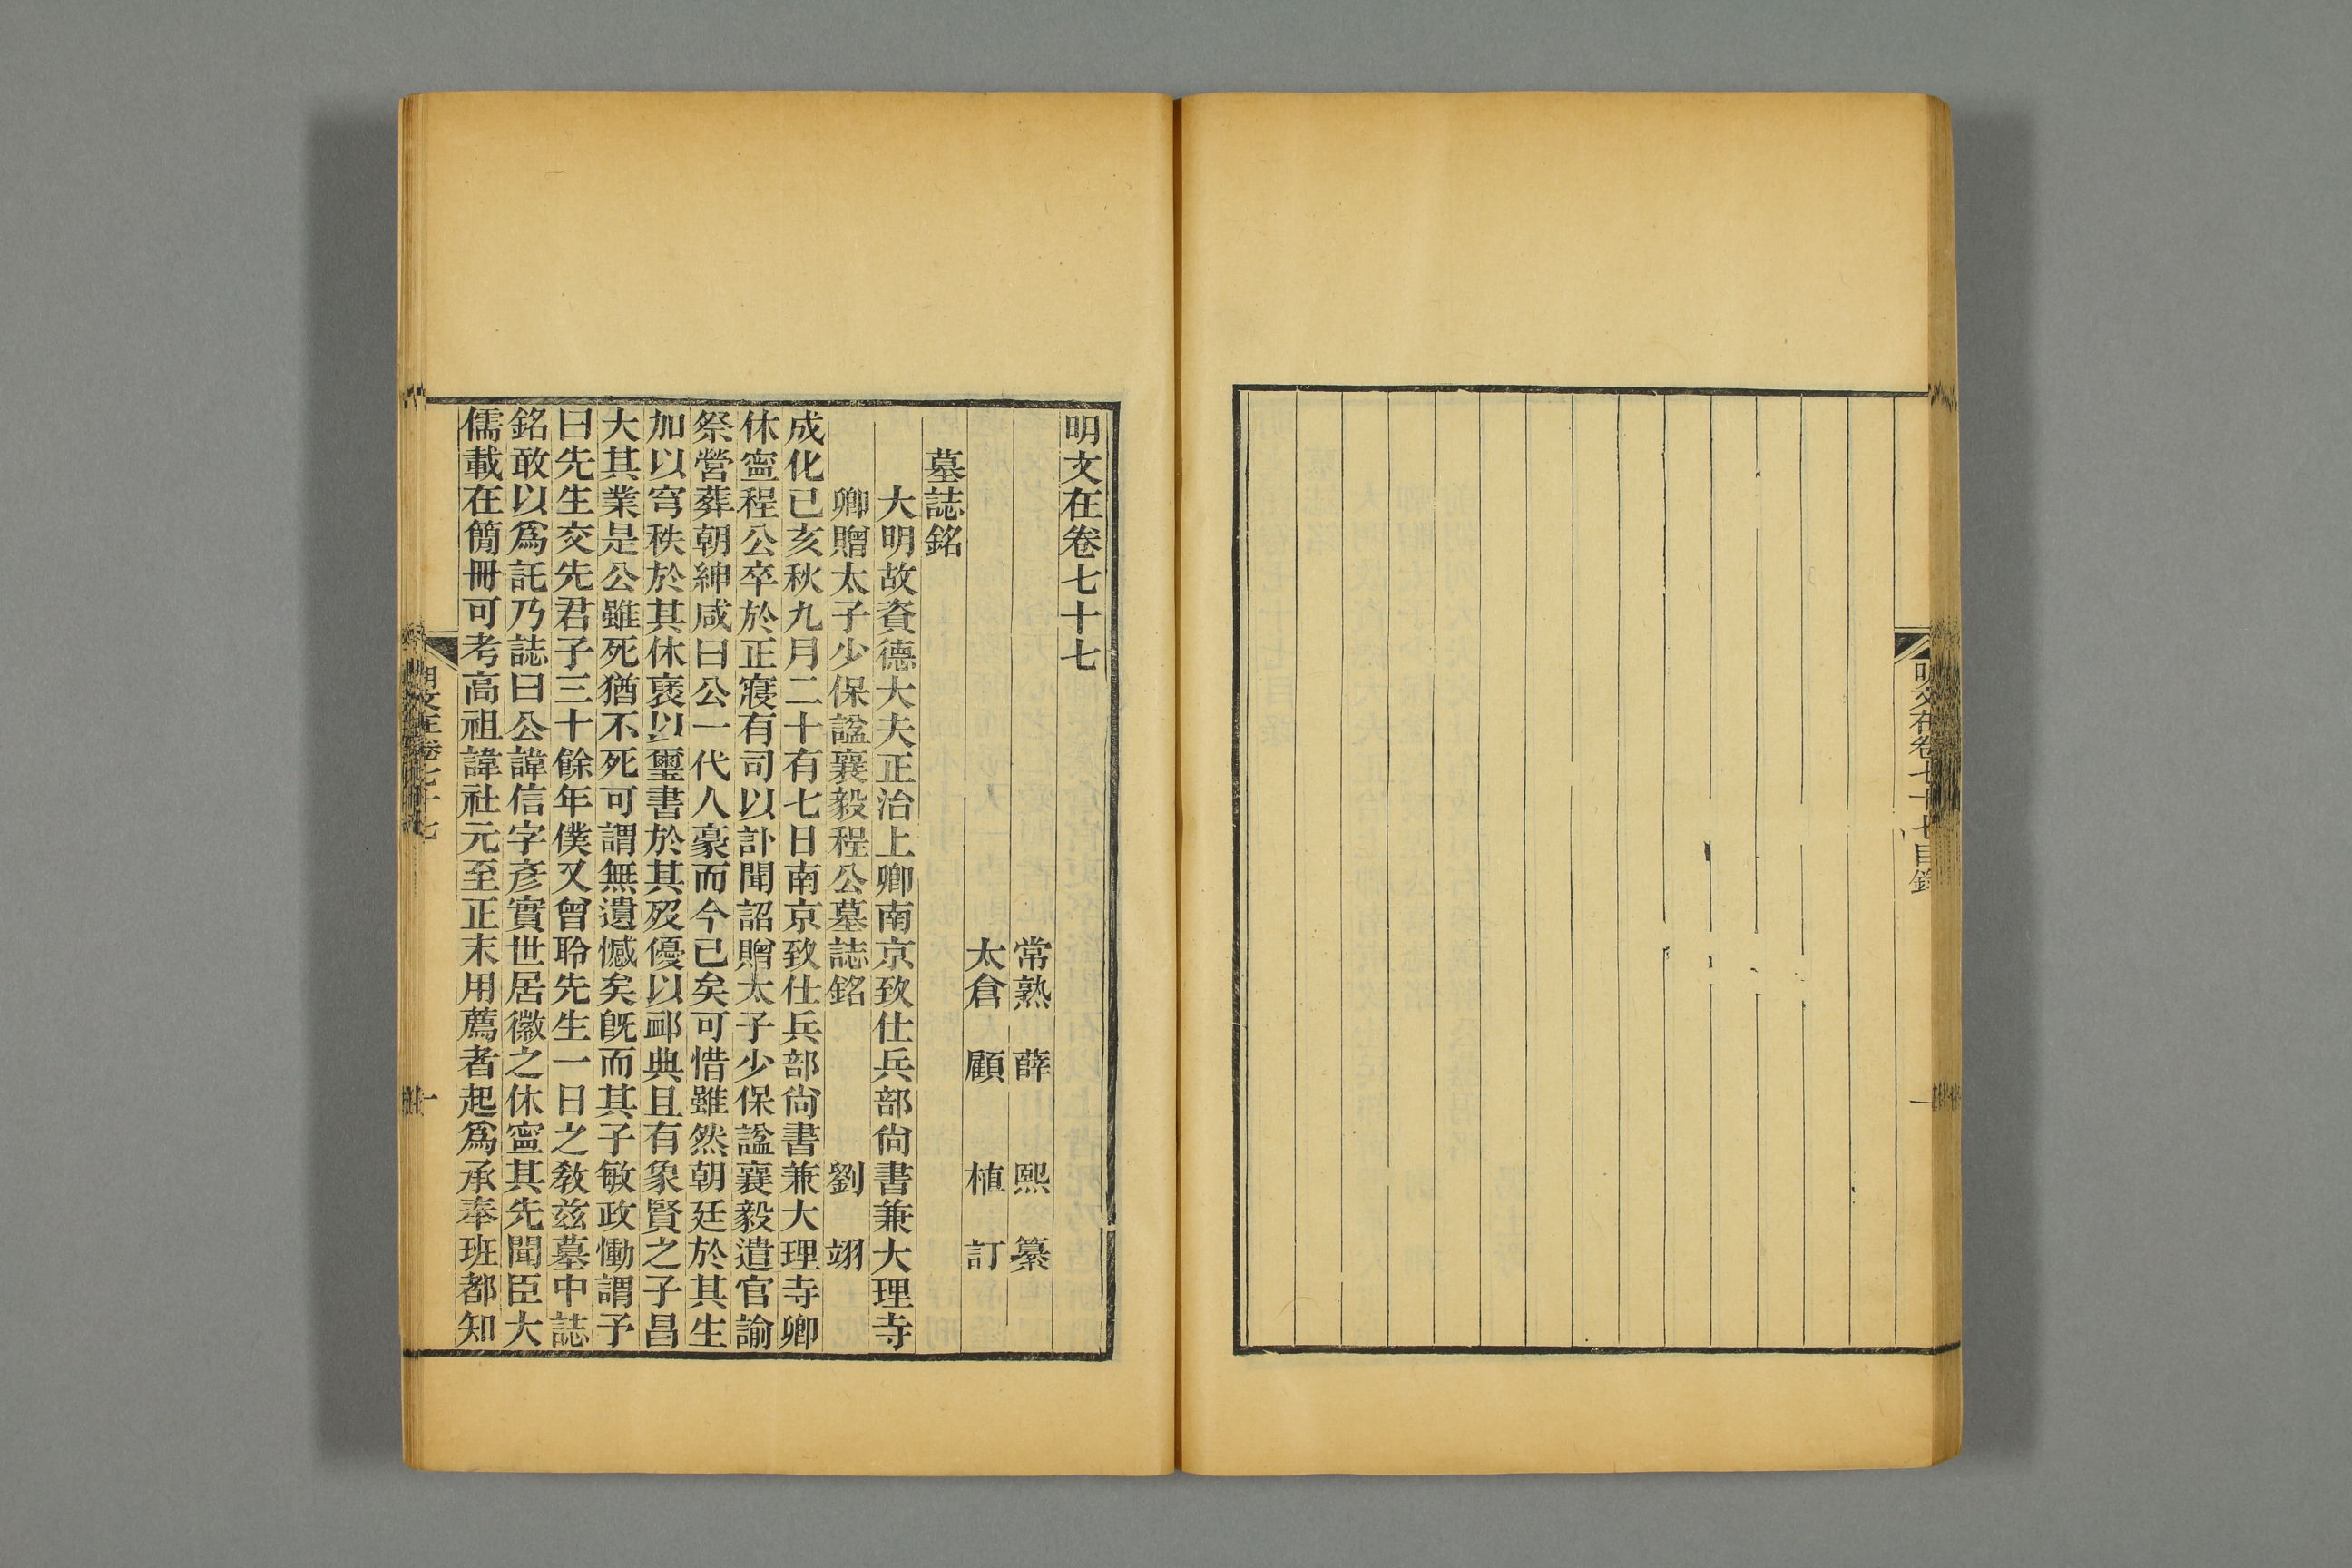 明文在卷七十七目錄
一
明文在卷七十七
常熟　薛　熙　纂
太倉　顧　植　訂
墓誌銘
大明故資德大夫正治上卿南京致仕兵部尙書兼大理寺
卿贈太子少保諡襄毅程公墓誌銘　劉　翊
成化已亥秋九月二十有七日南京致仕兵部尙書兼大理寺卿
休寧程公卒於正寢有司以訃聞詔贈太子少保諡襄毅遣官諭
祭營葬朝紳咸曰公一代人豪而今已矣可惜雖然朝廷於其生
加以穹秩於其休褒以璽書於其歿優以卹典且有象賢之子昌
大其業是公雖死猶不死可謂無遺憾矣旣而其子敏政慟謂予
曰先生交先君子三十餘年僕又曾聆先生一日之敎兹墓中誌
銘敢以爲託乃誌曰公諱信字彥實世居徽之休寧其先聞臣大
儒載在簡冊可考高祖諱社元至正末用薦者起爲承奉班都知
明文在卷七十七
一